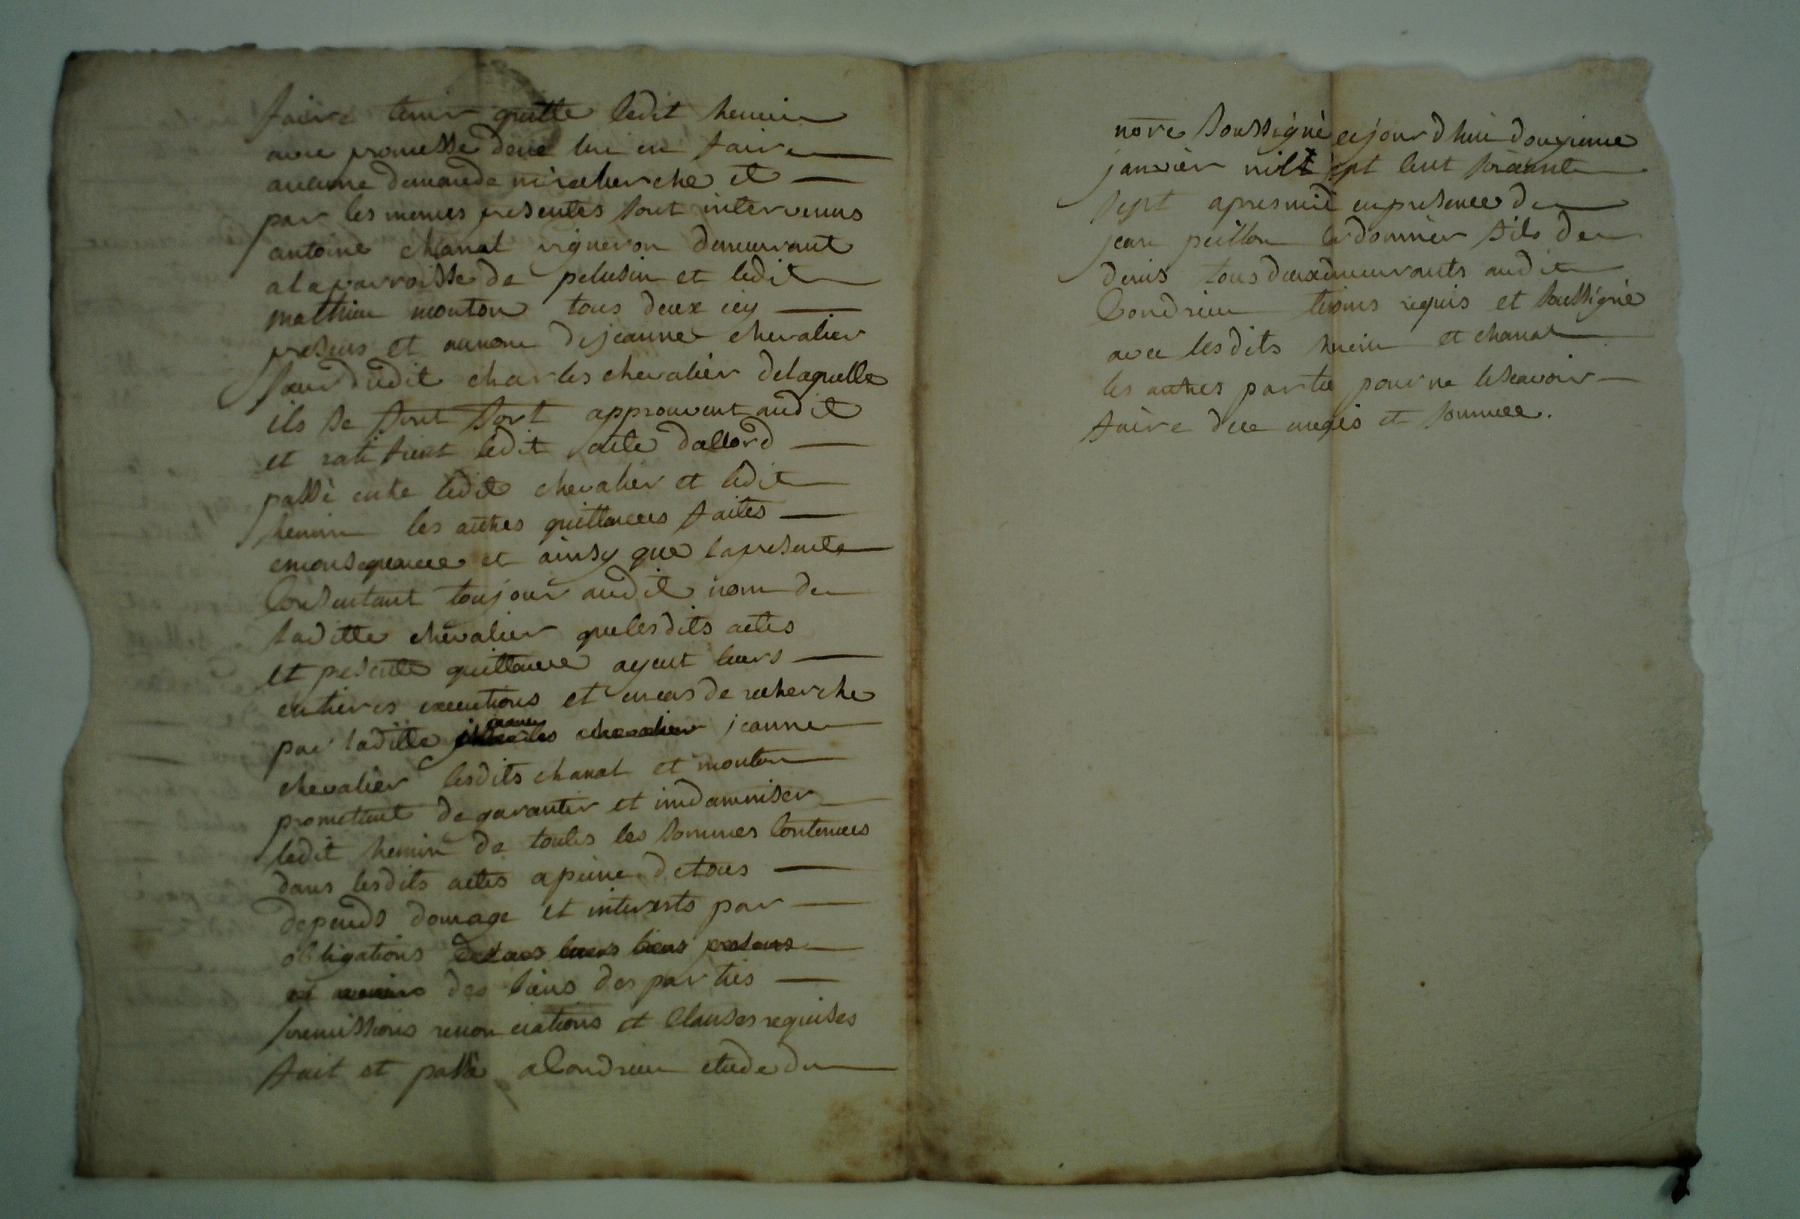 faire tenir quitte ledit hemin
avec promesse de ne lui en faire
aucune demande ni recherche et
par les memes presentes sont intervenus
antoine chanal vigneron demeurant
a la parroisse de pelusin et ledit
mathieu mouton tous deux icy
presens et aunom de jeanne chevalier
sœur dudit charles chevalier delaquelle
ils se font fort approuvent audit
et ratifient ledit acte dallord
passé entre ledit chevalier et ledit
hemin les autres quittances faites
enconsequence et ainsy que lapresente
Consentant toujour audit nom de
laditte chevalier que lesdits actes
et presente quittance ayent leurs
entieres executions et encas de recherche
par laditte jeanne
chevalier lesdits chanal et mouton
promettent de garantir et indamniser
ledit hemin de toutes les sommes Contenues
dans lesdits actes apeine de tous
depends domage et interests par
obligations de tous leurs biens presens
et avenir des biens des parties
soumissions renonciations et Clauses requises
fait et passé a Condrieu etude du
nore soussigné cejourdhui douzieme
janvier mil sept cent soixante
sept apresmidi en presence de
jean peillon Cordonnier fils de
denis tous deux demeurants audit
Condrieu temins requis et soussigné
avec lesdits hemin et chanal
les autres partie pour ne le scavoir
faire de ce enquis et sommée.